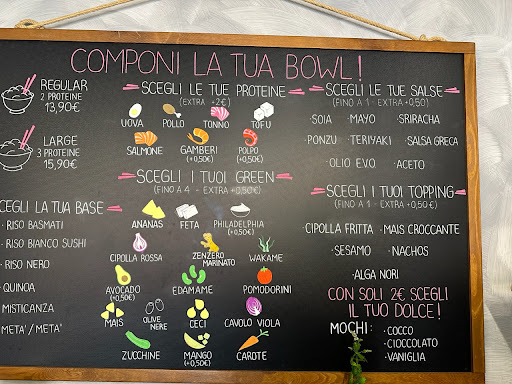 COMPONI LA TUA BOWL!
REGULAR
2 PROTEINE
13,90€
LARGE
3 PROTEINE
15,90€
SCEGLI LA TUA BASE
· RISO BASMATI
· RISO BIANCO SUSHI
· RISO NERO
· QUINOA
· MISTICANZA
· META'/META'
SCEGLI LE TUE PROTEINE
(EXTRA +2€)
UOVA
POLLO
TONNO
TOFU
SALMONE
GAMBERI
(+0,50€)
POLPO
(+0,50€)
SCEGLI I TUOI GREEN
(FINO A 4 - EXTRA +0,50€)
ANANAS
FETA
PHILADELPHIA
(+0,50€)
CIPOLLA ROSSA
ZENZERO
MARINATO
WAKAME
AVOCADO
(+0,50€)
EDAMAME
POMODORINI
MAIS
OLIVE
NERE
CECI
CAVOLO VIOLA
ZUCCHINE
MANGO
(+0,50€)
CAROTE
SCEGLI LE TUE SALSE
(FINO A 1 - EXTRA +0,50)
·SOIA ·MAYO ·SRIRACHA
·PONZU ·TERIYAKI ·SALSA GRECA
·OLIO E.V.O. ·ACETO
SCEGLI I TUOI TOPPING
(FINO A 1 - EXTRA +0,50€)
·CIPOLLA FRITTA ·MAIS CROCCANTE
·SESAMO ·NACHOS
·ALGA NORI
CON SOLI 2€ SCEGLI
IL TUO DOLCE!
MOCHI: ·COCCO
·CIOCCOLATO
·VANIGLIA